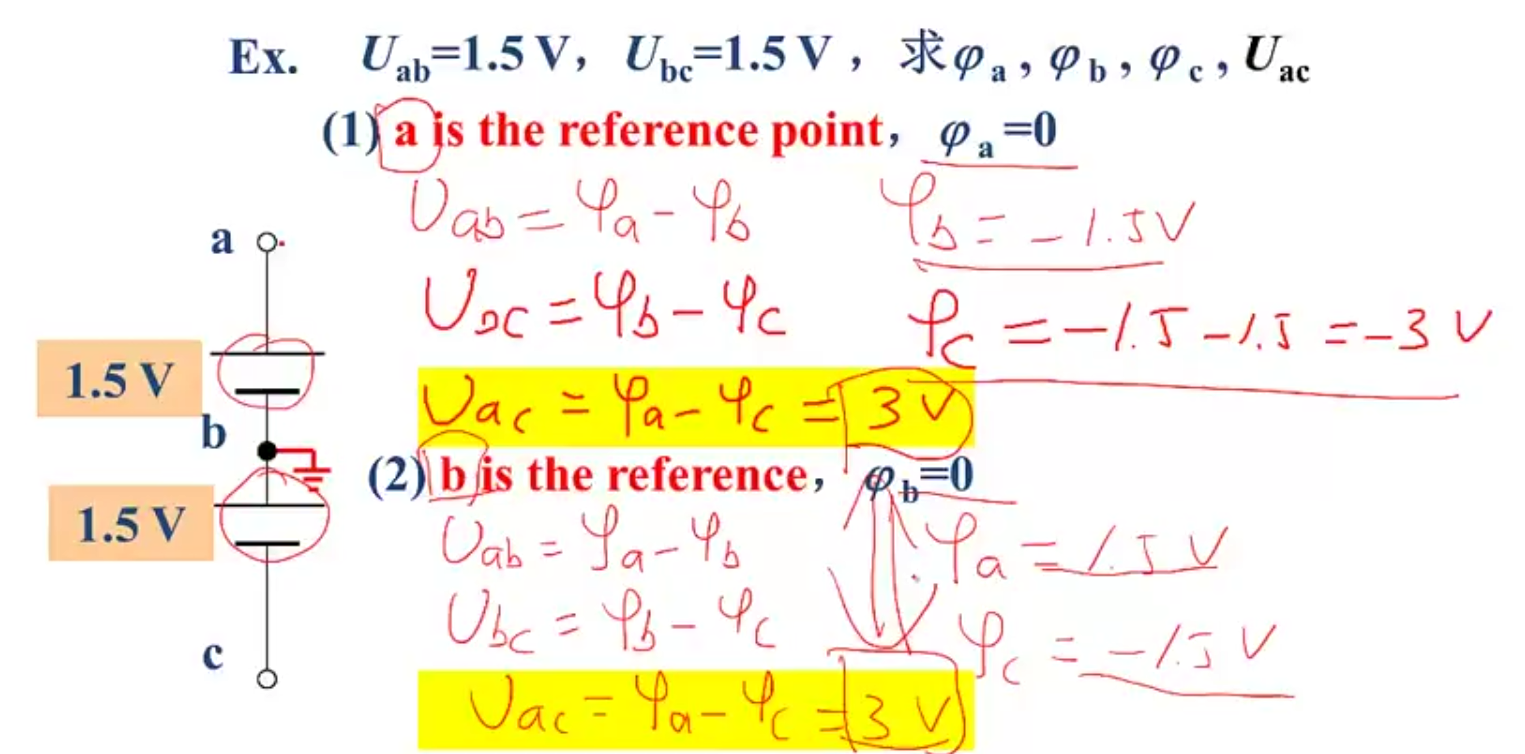 Ex. Uab=1.5 V, Ubc=1.5 V, 求φa, φb, φc, Uac
(1) a is the reference point, φa=0
Uab = φa - φb φb = -1.5V
a
Ubc = φb - φc φc = -1.5 -1.5 = -3 V
1.5 V
Uac = φa - φc = 3V
b
(2) b is the reference, φb=0
1.5 V
Uab = φa - φb φa = 1.5 V
Ubc = φb - φc φc = -1.5 V
c
Uac = φa - φc = 3 V